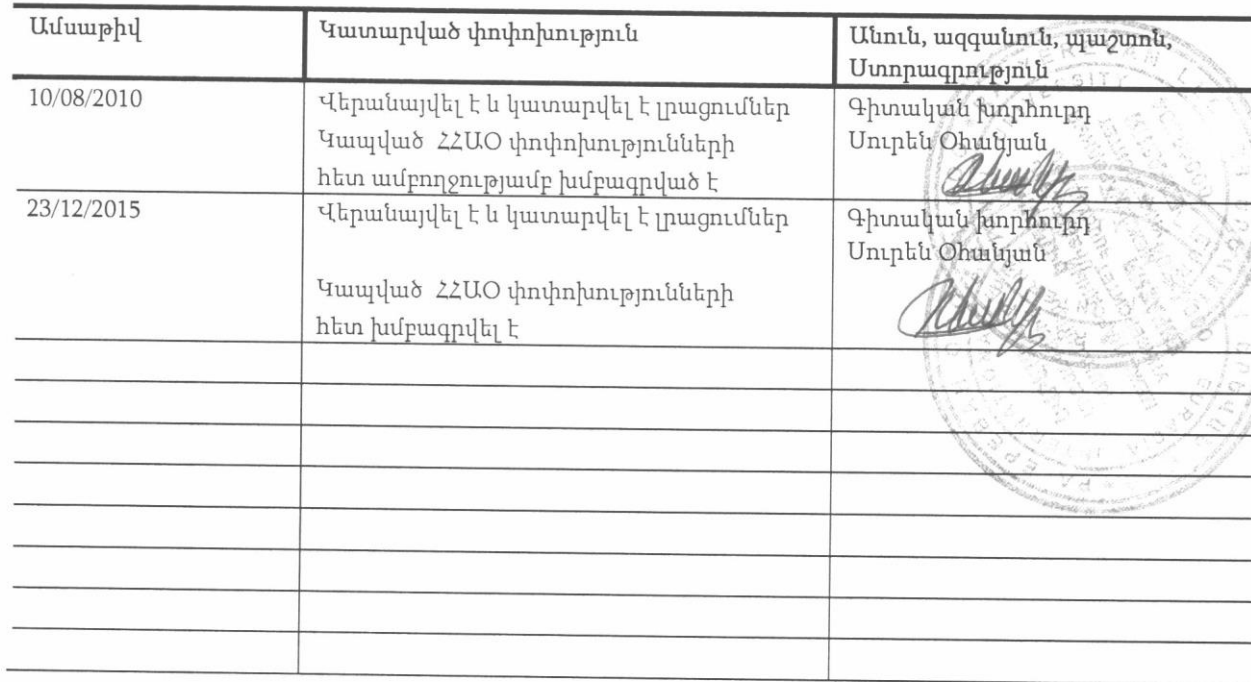 Ամսաթիվ
Կատարված փոփոխություն
Անուն, ազգանուն, պաշտոն,
Ստորագրություն
10/08/2010
Վերանայվել է և կատարվել է լրացումներ
Կապված ՀՀԱՕ փոփոխությունների
հետ ամբողջությամբ խմբագրված է
Գիտական խորհուրդ
Սուրեն Օհանյան
23/12/2015
Վերանայվել է և կատարվել է լրացումներ
Կապված ՀՀԱՕ փոփոխությունների
հետ խմբագրվել է
Գիտական խորհուրդ
Սուրեն Օհանյան